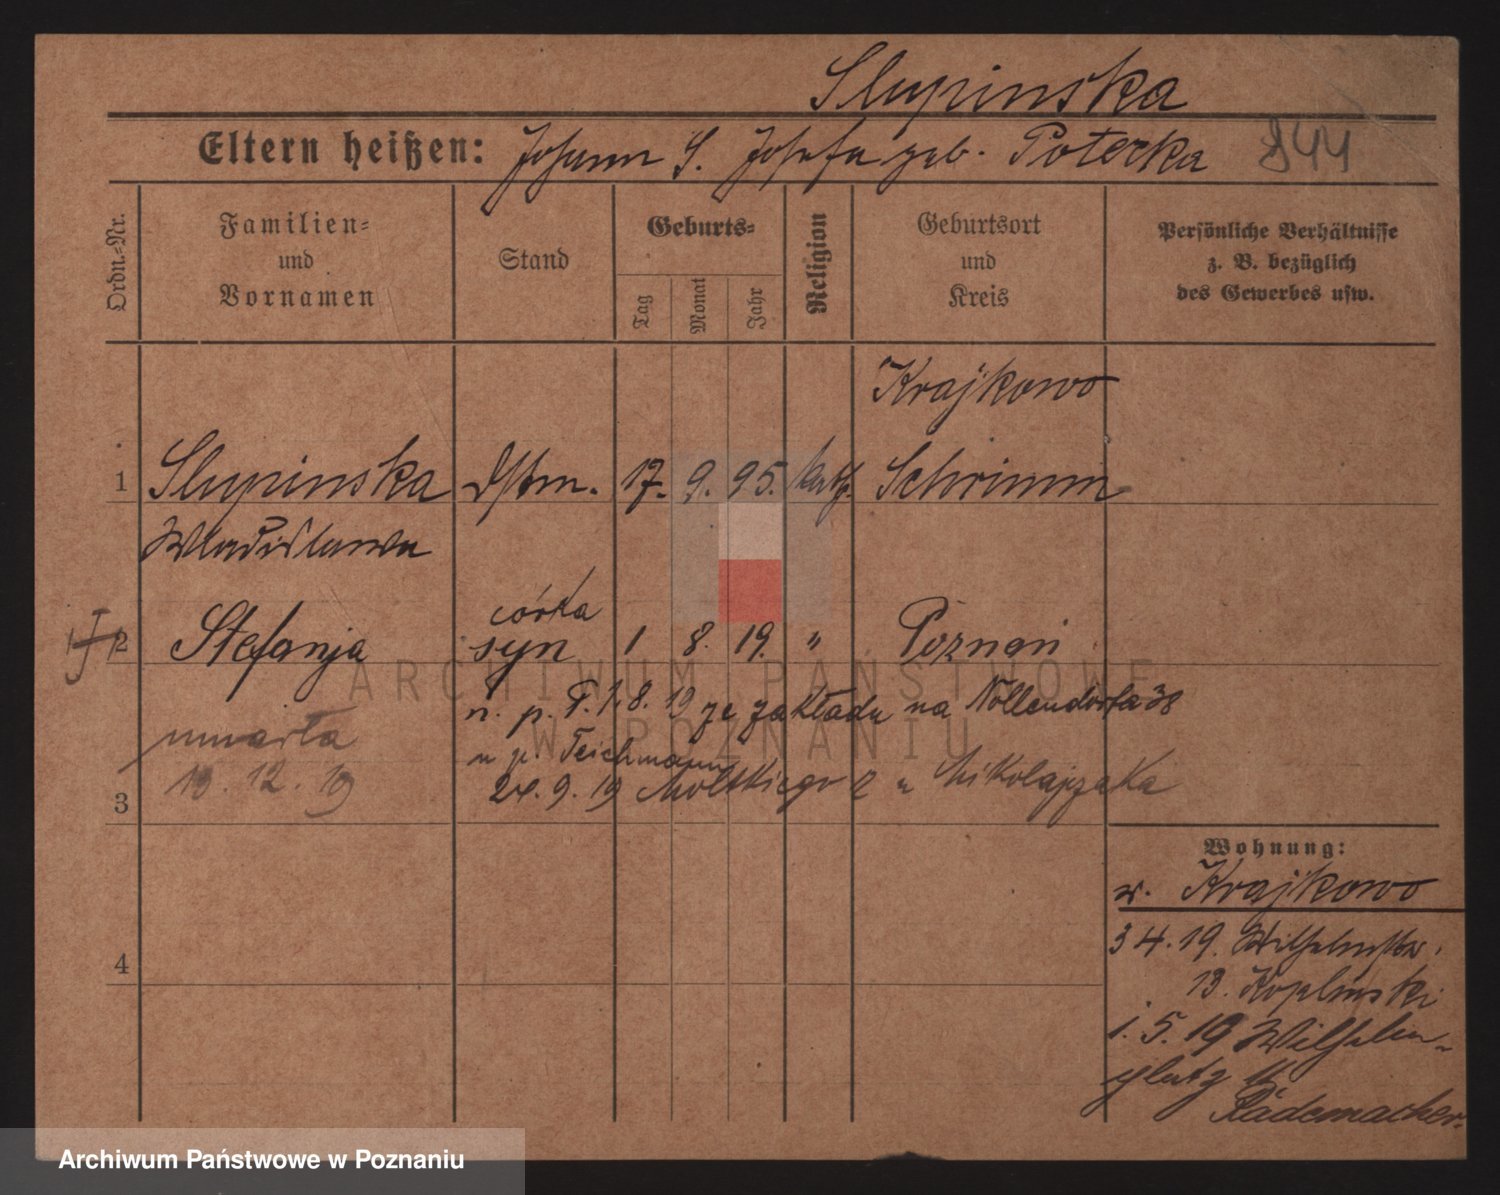 Slupinska
Eltern heißen: Johann S. Josefa geb. Poterka 844
Ordn.-Nr.
Familien-
und
Vornamen
Stand
Geburts-
Tag
Monat
Jahr
Religion
Geburtsort
und
Kreis
Persönliche Verhältnisse
z. B. bezüglich
des Gewerbes usw.
Krajkowo
1 Slupinska Dstm. 17. 9. 95. kath. Schrimm
Wladislawa
córka
2 Stefanja syn 1 8. 19. " Poznań
n. p. T. 1.8.19 ze zakładu na Nollendorfa 38
umarła
u p. Teichmann
13.12.19
24.9.19 Moltkiego 2 u Mikolajczaka
3
Wohnung:
w. Krajkowo
3 4.19. Wilhelmstr.
13. Koplinski
4
1.5.19 Wilhelm-
platz 11
Rademacher
ARCHIWUM PAŃSTWOWE
W POZNANIU
Archiwum Państwowe w Poznaniu